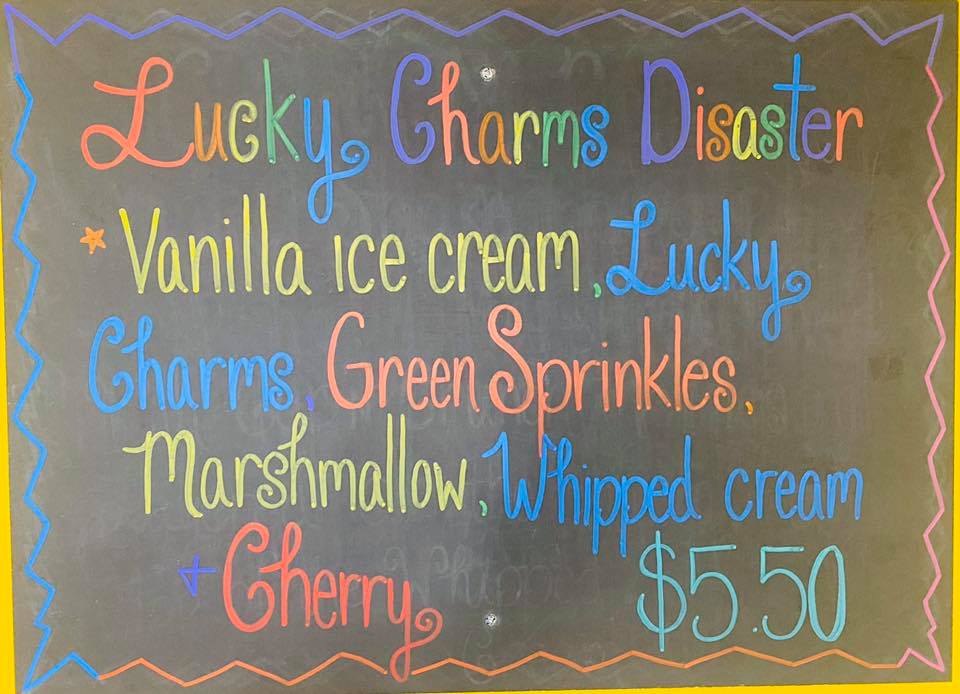 Lucky Charms Disaster
* Vanilla ice cream, Lucky
Charms, Green Sprinkles,
Marshmallow, Whipped cream
+ Cherry $5.50